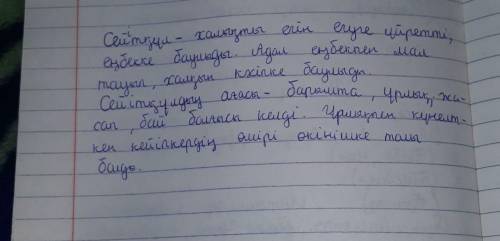 Сейітқұл - халықты егін егуге үйретті,
еңбекке баулыды. Адал еңбекпен мал
тауып, халқын кәсіпке баулыды.
Сейітқұлдың ағасы - барымта, ұрлық жа-
сап, бай болғысы келді. Ұрлықпен күнелт-
кен кейіпкердің өмірі өкінішке толы
болды.